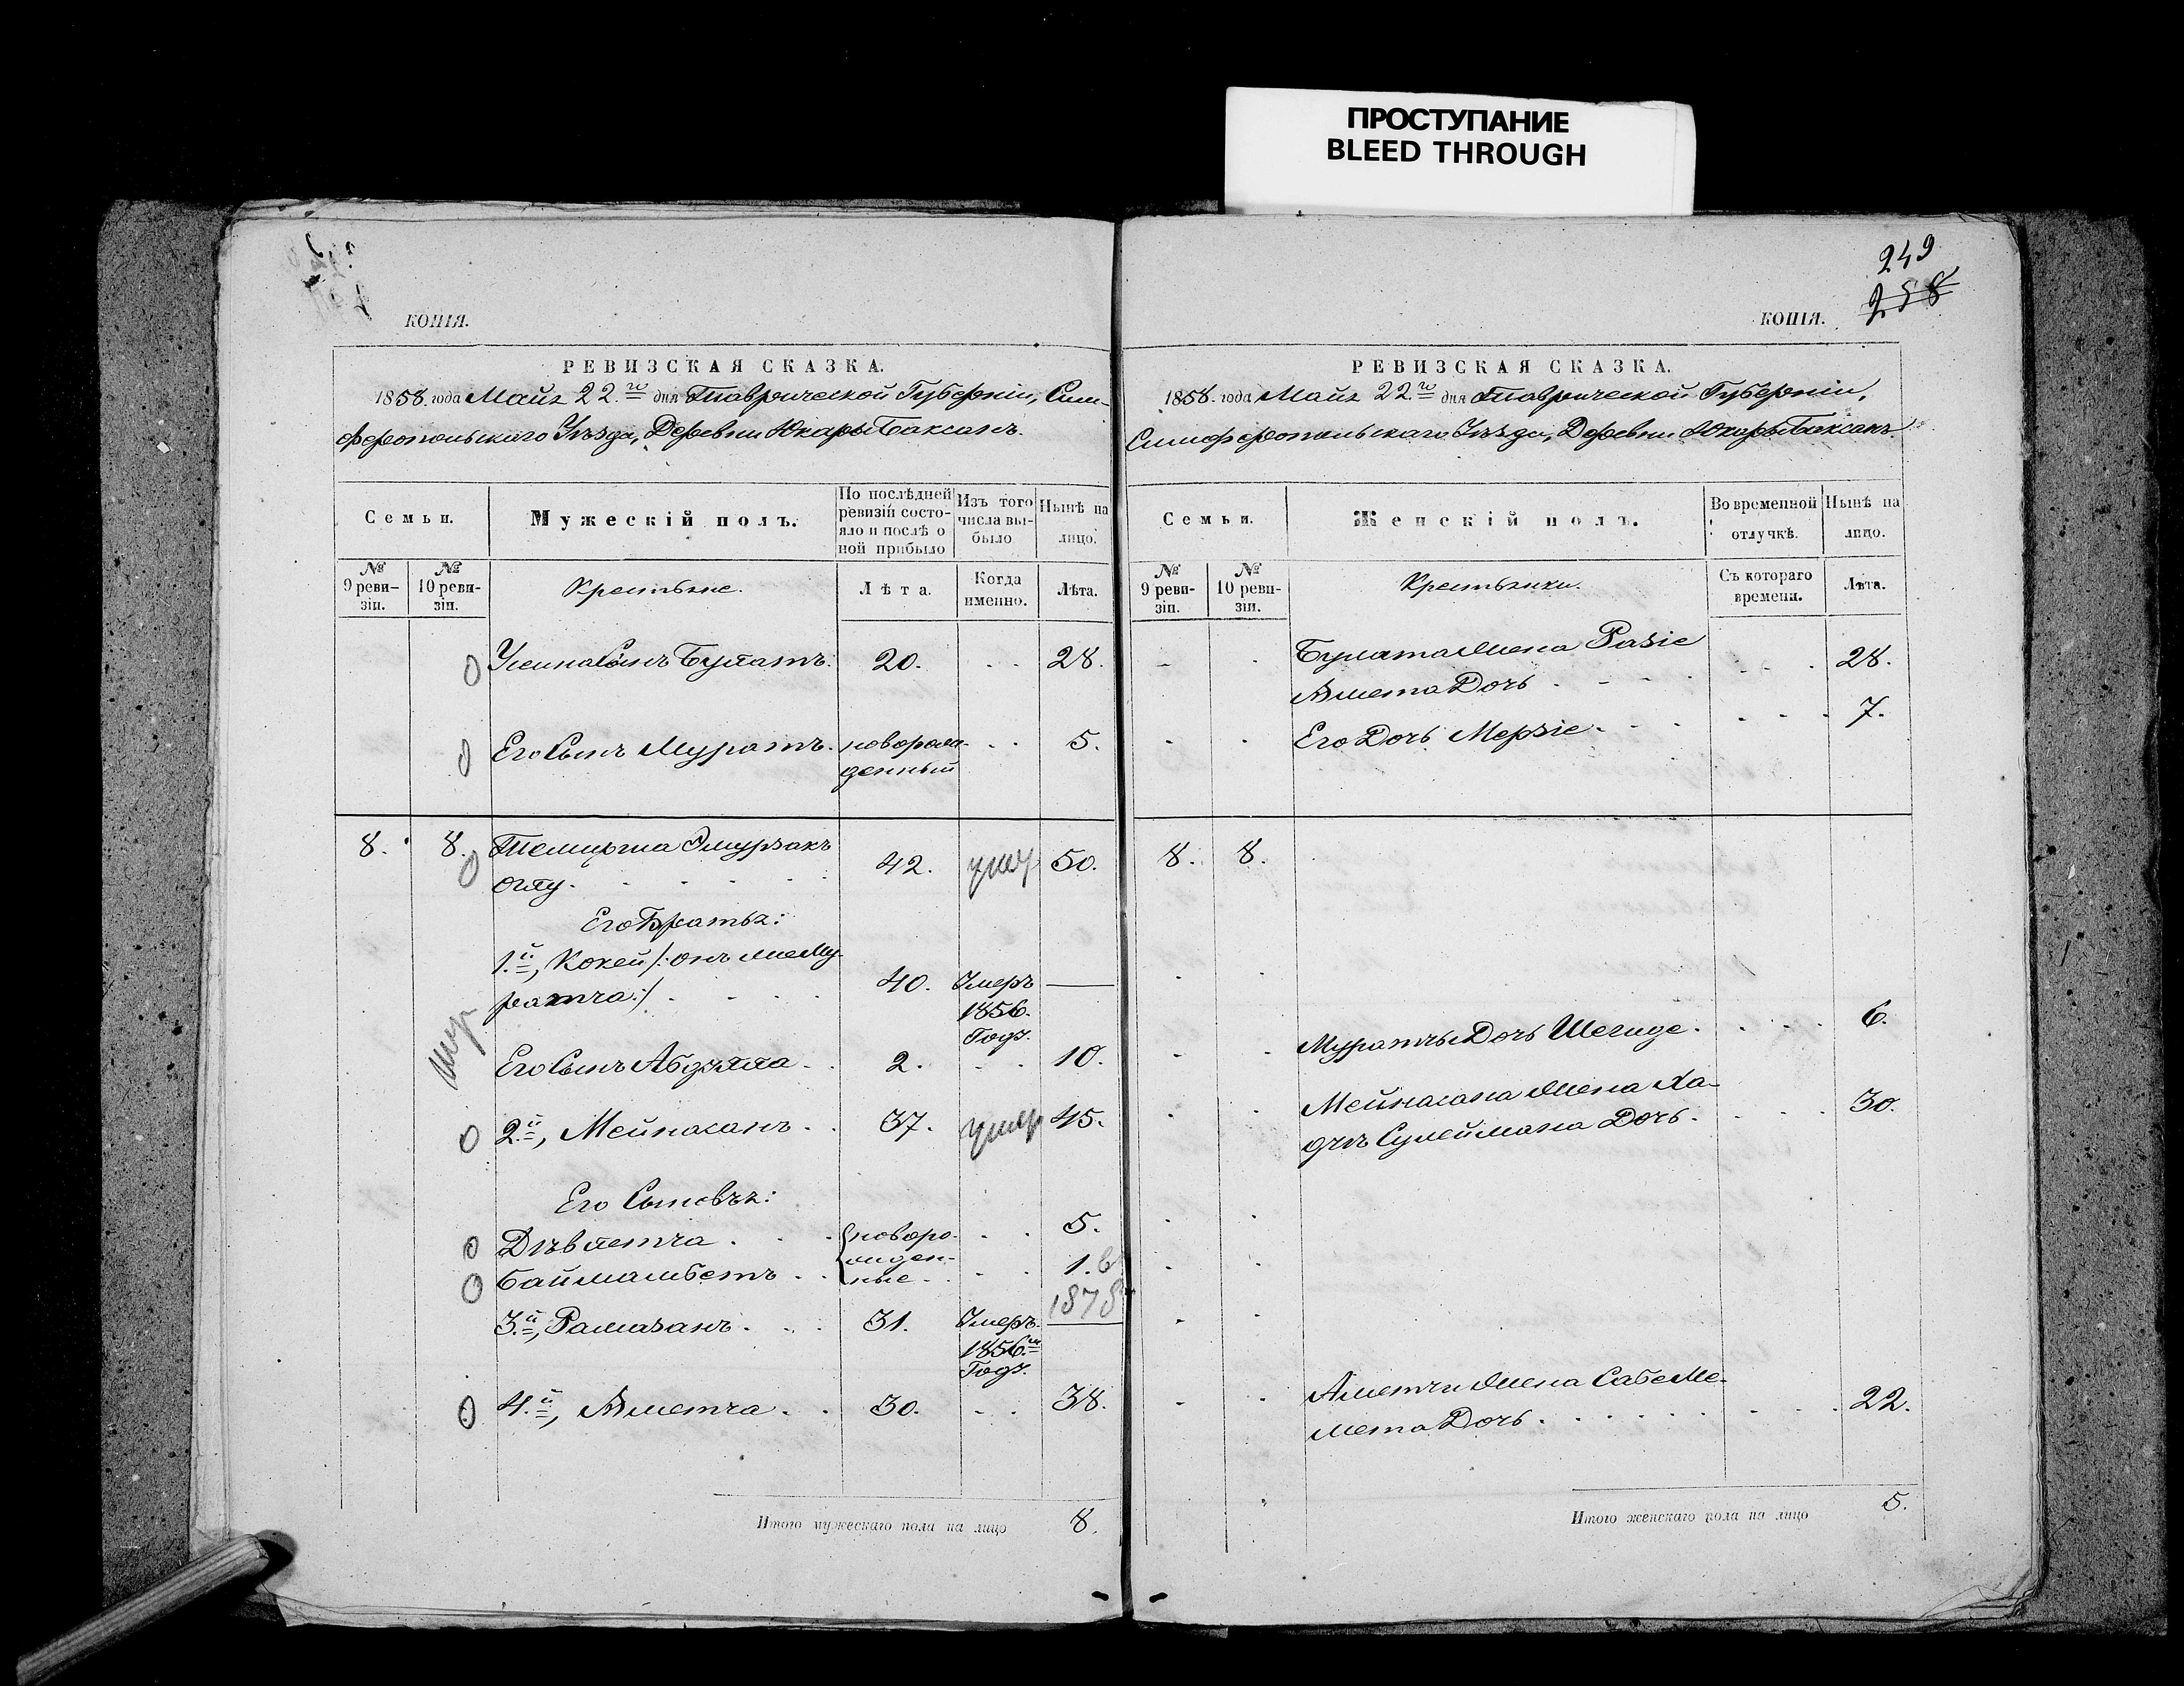 ПРОСТУПАНИЕ
BLEED THROUGH
249
258
КОПІЯ.
РЕВИЗСКАЯ СКАЗКА.
1858. года Маія 22.го дня Таврической Губерніи, Сим-
феропольскаго Уѣзда, Деревни Юкары Баксанъ.
Семьи.
Мужескій полъ.
По послѣдней ревизіи состо-яло и послѣ о ной прибыло
Изъ того числа вы-было
Нынѣ на лицо.
№ 9 реви-зіи.
№ 10 реви-зіи.
Крестьяне.
Лѣта.
Когда именно.
Лѣта.
Сынъ Булатъ. 20. 28.
Его Сынъ Муратъ. новорож-денный 5.
8. 8. Темирша Эмурзакъ
оглу. 42. умер 50.
Его Братья:
1.й, Кокей /: онъ же Му-
ратча :/ 40. Умеръ
1856.
Года.
умер
Его Сынъ Абдулла 2. 10.
2.й, Мейнасанъ 37. умер 45.
Его Сыновья:
Дѣвлетча новоро- 5.
Баймамбетъ жден-ные 1. в
1878
3.й, Рамазанъ 31. Умеръ
1856.го
Года.
4.й, Аметча 30. 38.
Итого мужескаго пола на лицо 8.
КОПІЯ.
РЕВИЗСКАЯ СКАЗКА.
1858. года Маія 22.го дня Таврической Губерніи,
Симферопольскаго Уѣзда, Деревни Юкары Баксанъ.
Семьи.
Женскій полъ.
Во временной отлучкѣ.
Нынѣ на лицо.
№ 9 реви-зіи.
№ 10 реви-зіи.
Крестьянки.
Съ котораго времени.
Лѣта.
Булата Жена Разіе
Амета Дочь 28.
Его Дочь Мерзіе 7.
8. 8.
Муратчи Дочь Шегиде 6.
Мейнасана Жена Ха-
Сулеймана Дочь 30.
Аметчи Жена Сабе Ме-
мета Дочь 22.
Итого женскаго пола на лицо 5.